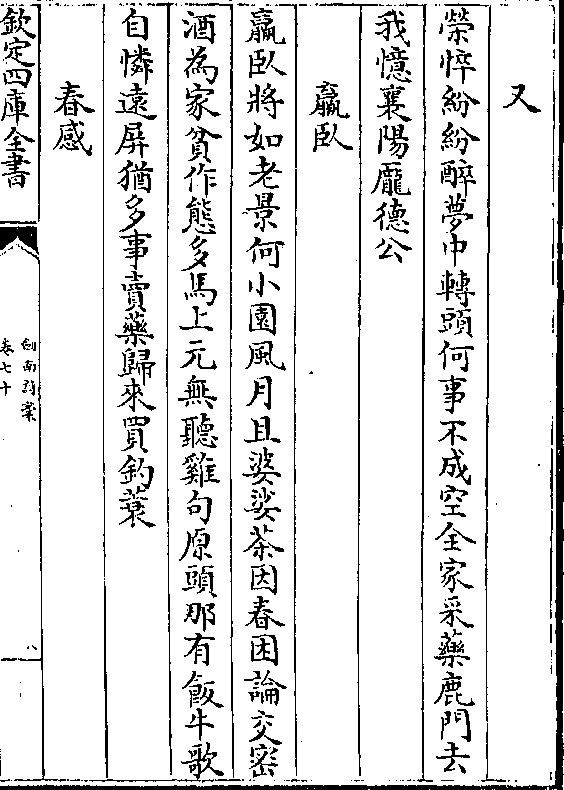 又
榮悴紛紛醉夢中轉頭何事不成空全家采藥鹿門去
我憶襄陽龎德公
羸臥
羸臥將如老景何小園風月且婆娑茶因春困論交密
酒為家貧作態多馬上元無聽雞句原頭那有飯牛歌
自憐遠屏猶多事賣藥歸來買釣蓑
春感
欽定四庫全書
劍南詩藁
卷七十
八